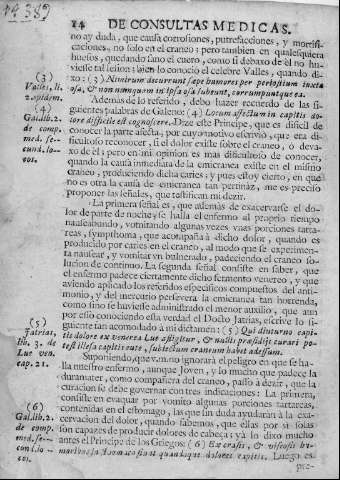 14 DE CONSULTAS MEDICAS.
no ay duda, que causa corrosiones, putrefacciones, y mortifi-
caciones, no solo en el craneo; pero tambien en qualesquiera
huesos, quedando sano el cuero, como si debaxo de èl no hu-
viesse tal lesion: bien lo conociò el celebre Valles, quando di-
xo: (3) Nimirum decurrunt sæpe humores per periostium iuxta
ossa, & non nunquam in ipsa ossa subeunt, corrumpuntque ea.
(3)
Valles, li.
2. epidem.
Ademàs de lo referido, debo hazer recuerdo de las si-
guientes palabras de Galeno: (4) Locum affectum in capitis do-
lore difficile est cognoscere. Dize este Principe, que es dificil de
conocer la parte afecta, por cuyo motivo escriviò, que era di-
ficultoso reconocer, si el dolor existe sobre el craneo, ò deva-
xo de èl; pero en mi opinion es mas dificultoso de conocer,
quando la causa inmediata de la emicranea existe en el mismo
craneo, produciendo dicha caries; y pues estoy cierto, en que
no es otra la causa de emicranea tan pertinàz, me es preciso
proponer las señales, que testifican mi dezir.
(4)
Gal. lib. 2.
de comp.
med. se-
cund. lo-
cos.
La primera señal es, que ademàs de exacervarse el do-
lor de parte de noche, se halla el enfermo al proprio tiempo
nauseabundo, vomitando algunas vezes unas porciones tarta-
reas, symptoma, que acompañà à dicho dolor, quando es
producido por caries en el craneo, al modo que se experimen-
ta nausear, y vomitar un bulnerado, padeciendo el craneo so-
lucion de continuo. La segunda señal consiste en saber, que
el enfermo padece ciertamente dicho fermento venereo, y que
aviendo aplicado los referidos especificos compuestos del anti-
monio, y del mercurio persevera la emicranea tan horrenda,
como sino se huviesse administrado el menor auxilio, que aun
por esso conociendo esta verdad el Docto Jatrias, escrive lo si-
guiente tan acomodado à mi dictamen: (5) Qui diuturno capi-
tis dolore ex venerea Lue affligitur, & nullis præsidijs curari po-
test illæsa capitis cute, subiectum craneum habet adessum.
(5)
Jatrias,
lib. 3. de
Lue ven.
cap. 21.
Suponiendo, que v.m. no ignorarà el peligro en que se ha-
lla nuestro enfermo, aunque Joven, y lo mucho que padece la
duramater, como compañera del craneo, passo à dezir, que la
curacion se debe governar con tres indicaciones: La primera,
consiste en evaquar por vomito algunas porciones tartareas,
contenidas en el estomago, las que sin duda ayudaràn à la exa-
cervacion del dolor, quando sabemos, que ellas por sì solas
son capazes de producir dolores de cabeza; yà lo dixo mucho
antes el Principe de los Griegos: (6) Ex crasis, & viscosis hu-
moribus in stomacho fiunt quandoque dolores capitis. Luego es
pre-
(6)
Gal. lib. 2.
de comp.
med. se-
cund. lo-
cos.